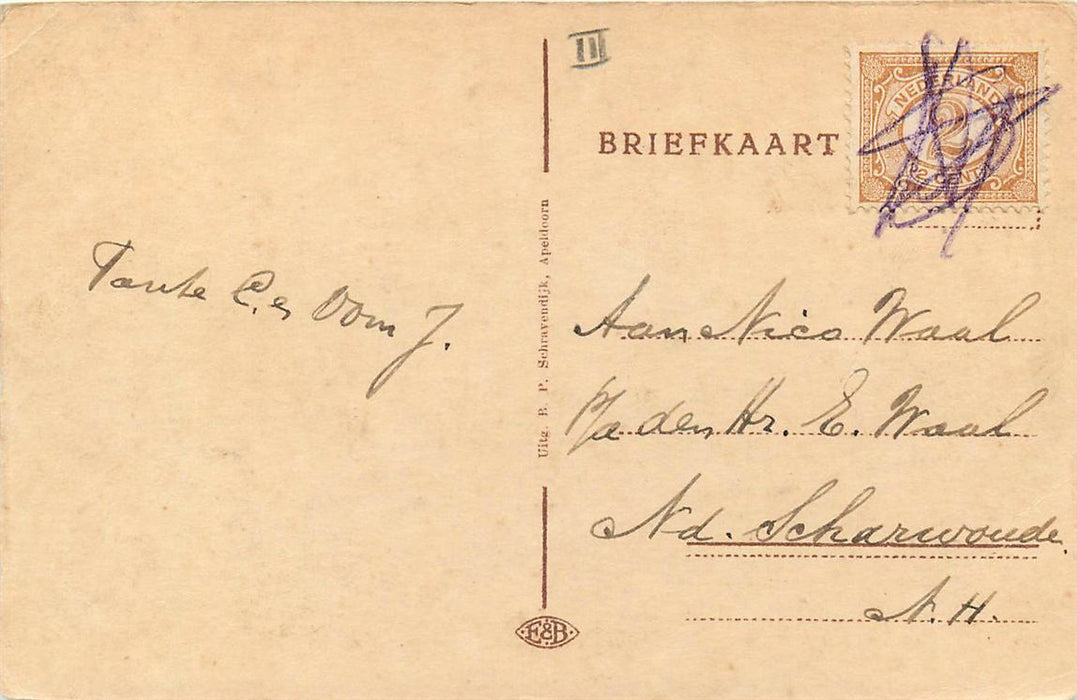 III
BRIEFKAART
NEDERLAND
2
2 CENT
Tante C. en Oom J.
Aan Nico Waal
p/a den Hr. E. Waal
Nd. Scharwoude
N. H.
Uitg. B. P. Schravendijk, Apeldoorn
E&B